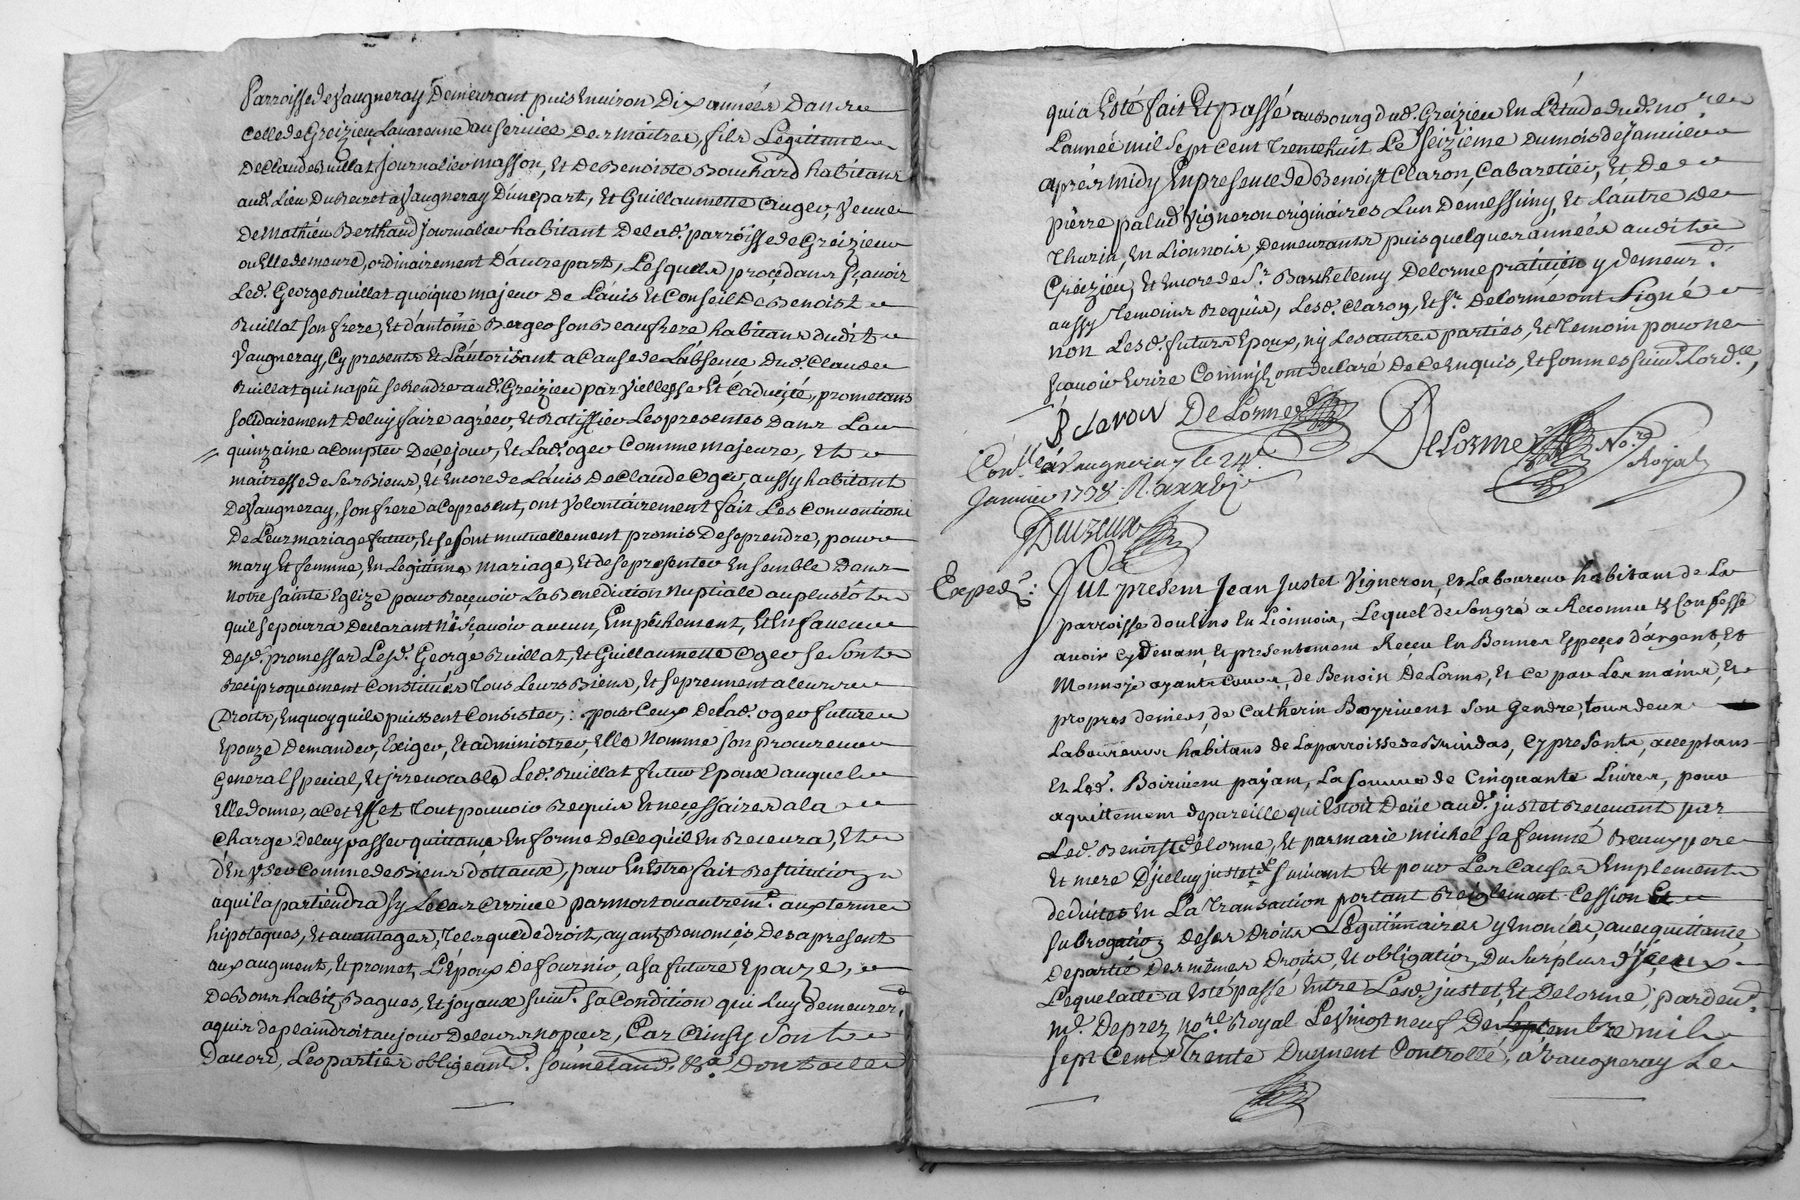 Parroisse de Vaugneray Demeurant puis Environ Dix années Dans
Celle de Greizieu Lavarenne au service Des maitres, fils Legittime
De Claude Ruillat Journalier masson, Et De Benoiste Bouchard habitans
aud. Lieu Du Recret a Vaugneray D'une part, Et Guillaumette Oger, Veuve
De Mathieu Berthaud Journalier habitant De lad. parroisse de Greizieu
ou Elle demeure, ordinairement D'autre part, Lesquels procedans sçavoir
Led. George Ruillat quoique majeur De L'avis Et Conseil De Benoist
Ruillat son frere, Et d'antoine Berger son Beaufrere habitans dudit
Vaugneray, Cy presents Et L'autorisant a Cause de L'absence Dud. Claude
Ruillat qui n'a pû se Rendre aud. Greizieu par Vielesse Et Caducité, prometans
solidairement De luy faire agréer, Et Ratiffier Les presentes Dans La
quinzaine a Compter De Ce jour, Et Lad. oger Comme majeure, Et
maitresse de ses Biens, Et Encore de L'avis De Claude Oger, aussy habitant
De Vaugneray, son frere a Ce present, ont Volontairement fait Les Conventions
De Leur mariage futur, Et se sont mutuellement promis De se prendre, pour
mary Et femme, En Legittime mariage, Et de se presenter Ensemble Dans
notre sainte Eglize pour Recevoir La Benediction Nuptiale au plustôt
qu'il se pourra Declarant N'en sçavoir aucun, Empêchement, Et En faveur
Desd. promesses Lesd. George Ruillat, Et Guillaumette Oger se sont
Reciproquement Constitués Tous Leurs Biens, Et se prennent a Leurs
Droits, En quoy qu'ils puissent Consister; pour Ceux De lad. oger future
Epouze Demander, Exiger, Et administrer, Elle Nomme son procureur
General special, Et jrrevocable Led. Ruillat futur Epoux auquel
Elle donne, a Cet Effet Tout pouvoir Requis Et necessaires a la
Charge De luy passer quittance En forme De Ce qu'il En Recevra, Et
D'En Vser Comme de Biens dottaux, pour En Estre fait Restitution
a qui la partiendra sy Le Cas arrive par mort ou autrem.t aux termes
hipoteques, Et avantages, Tels que de droit, ayant Renoncés Des a present
aux augment, Et promet, L'Epoux De fournir, a sa future Epouze,
De Bons habits Bagues, Et joyaux suiv.t sa Condition qui Luy demeurer.t
aquis de plain droit au jour De leurs nopces, Car Ainsy sont
D'acord, Les parties obligeant. soumetand. &a. Dont acte
qui a Esté fait Et passé au Bourg dud. Greizieu En L'Etude dud. no.re
L'année mil sept Cent Trente huit Le seizieme Du mois de janvier
aprés midy En presence de Benoist Claron, Cabaretier, Et De
pierre palud Vigneron originaires L'un De messimy, Et L'autre De
Thurin, En Lionnois, Demeurants puis quelques années audit
Greizieu, Et Encore de s.r Barthelemy Delorme praticien y demeur.t
aussy Temoins Requis, Lesd. Claron, Et s.r Delorme ont signé
non Lesd. futurs Epoux, ny Les autres parties, Et Temoin pour ne
sçavoir Ecrire Comme jls ont declaré De Ce Enquis, Et sommes suiv.t L'ord.ce,
B Claron Delorme
Delorme No.re
Royal
Con.lé à Vaugneray le 24.e
Janvier 1738.
Exped.é:
Fut present Jean Justet Vigneron, Et Laboureur habitant de La
parroisse d'oulins En Lionnois, Lequel de son gré a Reconnu & Confessé
avoir Cy devant, Et presentement Receu En Bonnes Especes d'argent, Et
Monnoye ayant Cours, de Benoit Delorme, Et Ce par Les mains, Et
propres deniers de Catherin Boyrivent son Gendre, tous deux
Laboureurs habitans de La parroisse de Brindas, Cy presents, acceptans
Et Led. Boirivent payant, La somme de Cinquante Livres, pour
aquittement de pareille qui Estoit Deüe aud. justet Recevant par
Led. Benoist delorme, Et par marie michel sa femme Beaux pere
Et mere D'jceluy justet suivant Et pour Les Causes Emplement
deduites En La Transaction portant Reglement Cession Et
subrogation De ses Droits Legitimaires y Enoncée, avec quittance
De partie Des mêmes Droits, Et obligation Du surplus D'jceux
Lequel acte a Esté passé Entre Lesd. justet, Et Delorme, pardev.t
m.e Deprez no.re Royal Le vingt neuf De septembre mil
sept Cent Trente Duement Controllé, a Vaugneray Le